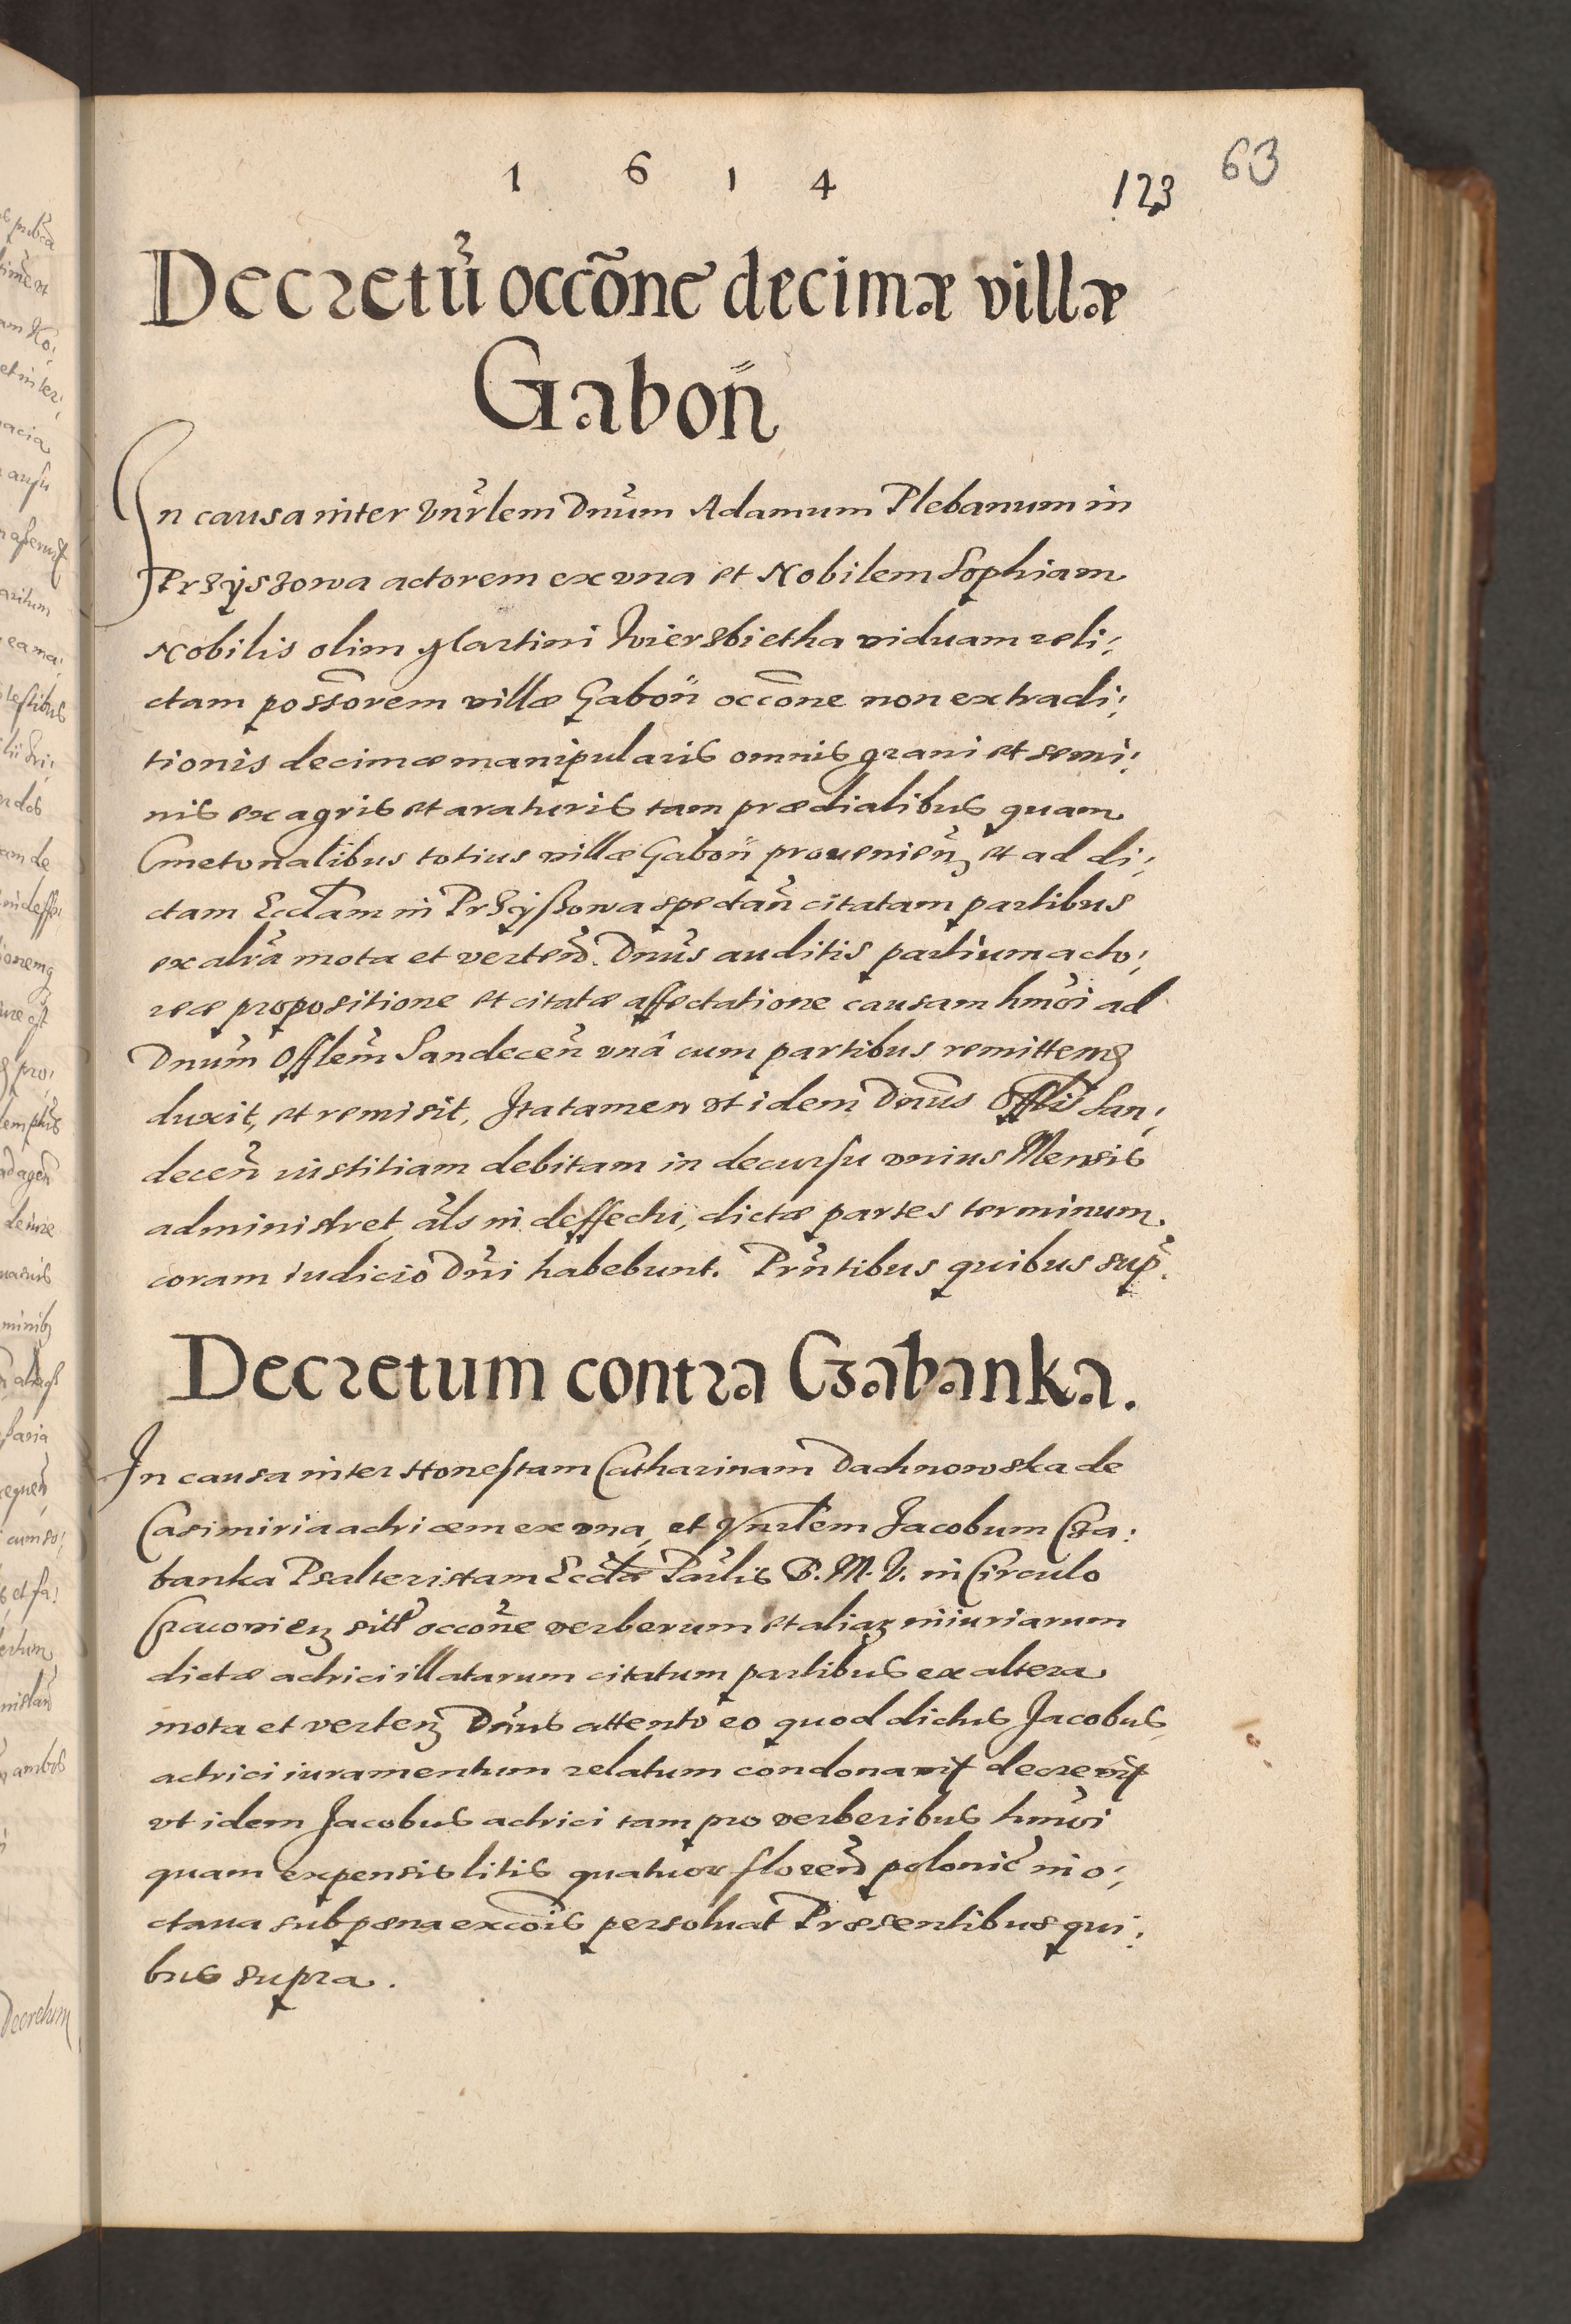 1 6 1 4
123
63
Decretu᷉ occõne decimæ villæ
Gabon̈
In causa inter Vnr̃lem Dnũm Adamum Plebanum in
Przÿszowa actorem ex vna et Nobilem Sophiam
Nobilis olim Martini Wierzbietha viduam reli:
ctam possõrem villæ Gabon̈ occõne non extradi:
tionis decimæ manipularis omnis grani et semi:
nis ex agris et araturis tam prædialibus quam
Cmetonalibus totius villæ Gabon̈ prouenien̄ et ad di:
ctam Eccl̃am in Przÿszowa spectan̄ citatam partibus
ex altr̃a mota et verten̄. Dnũs auditis partium acto:
reæ propositione et citatæ affectatione causam hmõi ad
Dnũm Offlẽm Sandecen̄ vnâ cum partibus remitten̄
duxit, et remisit, Ita tamen vt idem Dnũs Offl̃is San:
decen̄ iustitiam debitam in decursu vnius Mensis
administret, al̃s in deffectu, dictæ partes terminum
coram iudicio Dñi habebunt. Prñtibus quibus sup̃.
Decretum contra Czabanka.
In causa inter Honestam Catharinam Dachnowska de
Casimiria actricem ex vna, et Vnr̃lem Jacobum Cza:
banka Psalteristam Eccl̃æ Par̃lis B. M. V. in Circulo
Cracouien̄ sitæ occõne verberum et aliarꝫ iniuriarum
dictæ actrici illatarum citatum partibus ex altera
mota et verten̄ Dnũs attento eo quod dictus Jacobus
actrici iuramentum relatum condonauit decreuit
vt idem Jacobus actrici tam pro verberibus hmõi
quam expensis litis quatuor floren̄ polonic̃ in o:
ctaua sub pœna excõis persoluat Præsentibus qui:
bus supra.
Decretum